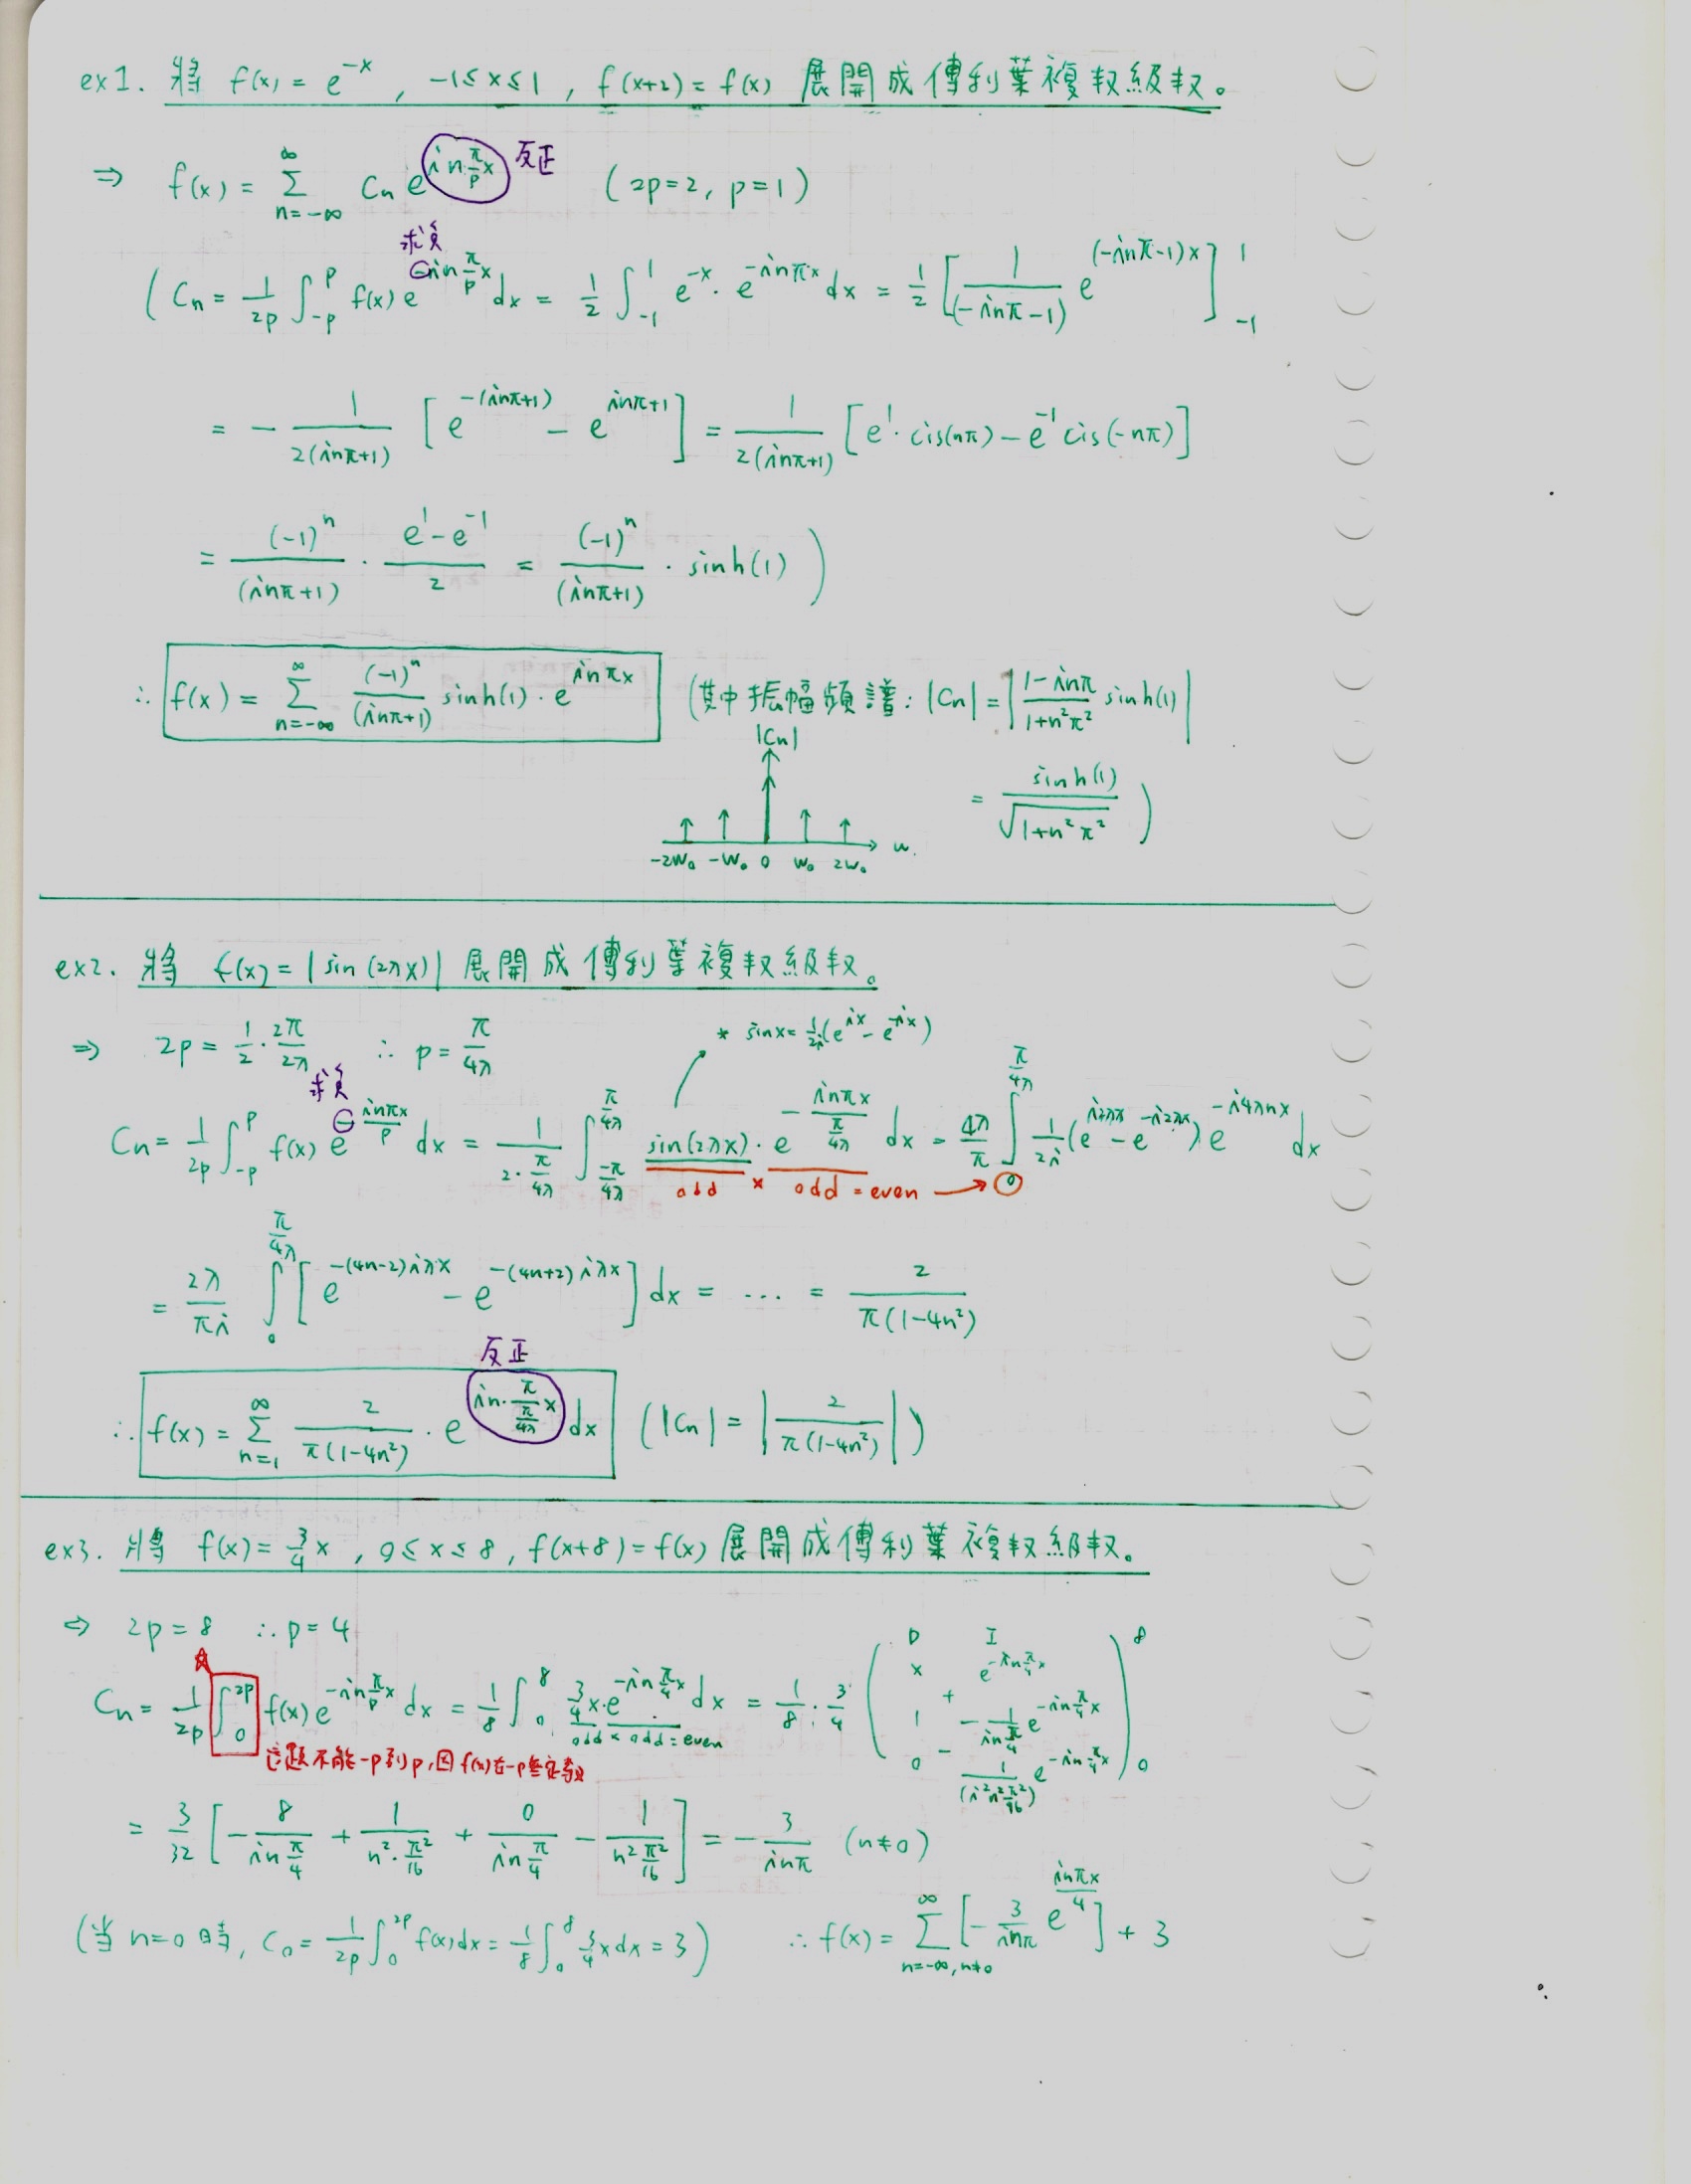 ex1. 將 f(x) = e^{-x}, -1≤x≤1, f(x+2) = f(x) 展開成傅利葉複数級数。
⇒ f(x) = Σ_{n=-∞}^{∞} Cn e^{in(π/p)x} 反正 (2p=2, p=1)
求負
(Cn = 1/(2p) ∫_{-p}^{p} f(x) e^{-in(π/p)x} dx = 1/2 ∫_{-1}^{1} e^{-x}·e^{-inπx} dx = 1/2 [1/(-inπ-1) e^{(-inπ-1)x}]_{-1}^{1}
= - 1/(2(inπ+1)) [e^{-(inπ+1)} - e^{inπ+1}] = 1/(2(inπ+1)) [e^1·cis(nπ) - e^{-1} cis(-nπ)]
= (-1)^n/(inπ+1) · (e^1 - e^{-1})/2 = (-1)^n/(inπ+1) · sinh(1))
∴ f(x) = Σ_{n=-∞}^{∞} (-1)^n/(inπ+1) sinh(1)·e^{inπx} (其中振幅頻譜: |Cn| = |(1-inπ)/(1+n²π²) sinh(1)|
|Cn|
= sinh(1)/√(1+n²π²))
-2w₀ -w₀ 0 w₀ 2w₀ w.
ex2. 將 f(x) = |sin(2λx)| 展開成傅利葉複数級数。
⇒ 2p = 1/2·2π/2λ ∴ p = π/4λ * sinx = 1/2i(e^{ix} - e^{-ix})
求負
Cn = 1/(2p) ∫_{-p}^{p} f(x) e^{-inπx/p} dx = 1/(2·π/4λ) ∫_{-π/4λ}^{π/4λ} sin(2λx)·e^{-inπx/(π/4λ)} dx = 4λ/π ∫_0^{π/4λ} 1/2i (e^{i2λx} - e^{-i2λx}) e^{-i4λnx} dx
odd × odd = even → 0
= 2λ/πi ∫_0^{π/4λ} [e^{-(4n-2)iλx} - e^{-(4n+2)iλx}] dx = ... = 2/(π(1-4n²))
反正
∴ f(x) = Σ_{n=1}^{∞} 2/(π(1-4n²)) · e^{in·π/(π/4λ) x} dx (|Cn| = |2/(π(1-4n²))|)
ex3. 將 f(x) = 3/4 x, 0≤x≤8, f(x+8) = f(x) 展開成傅利葉複数級数。
⇒ 2p = 8 ∴ p = 4
☆
Cn = 1/(2p) ∫_0^{2p} f(x) e^{-in(π/p)x} dx = 1/8 ∫_0^8 3/4 x·e^{-in(π/4)x} dx = 1/8·3/4 (
D I
x e^{-in(π/4)x}
+
1 -1/(in π/4) e^{-in(π/4)x}
-
0 1/(i²n² π²/16) e^{-in(π/4)x} )_0^8
odd × odd = even
這題不能-p到p,因f(x)在-p無定義
= 3/32 [-8/(in π/4) + 1/(n²·π²/16) + 0/(in π/4) - 1/(n² π²/16)] = -3/(inπ) (n≠0)
(當 n=0 時, C₀ = 1/(2p) ∫_0^{2p} f(x)dx = 1/8 ∫_0^8 3/4 x dx = 3) ∴ f(x) = Σ_{n=-∞, n≠0}^{∞} [-3/(inπ) e^{inπx/4}] + 3